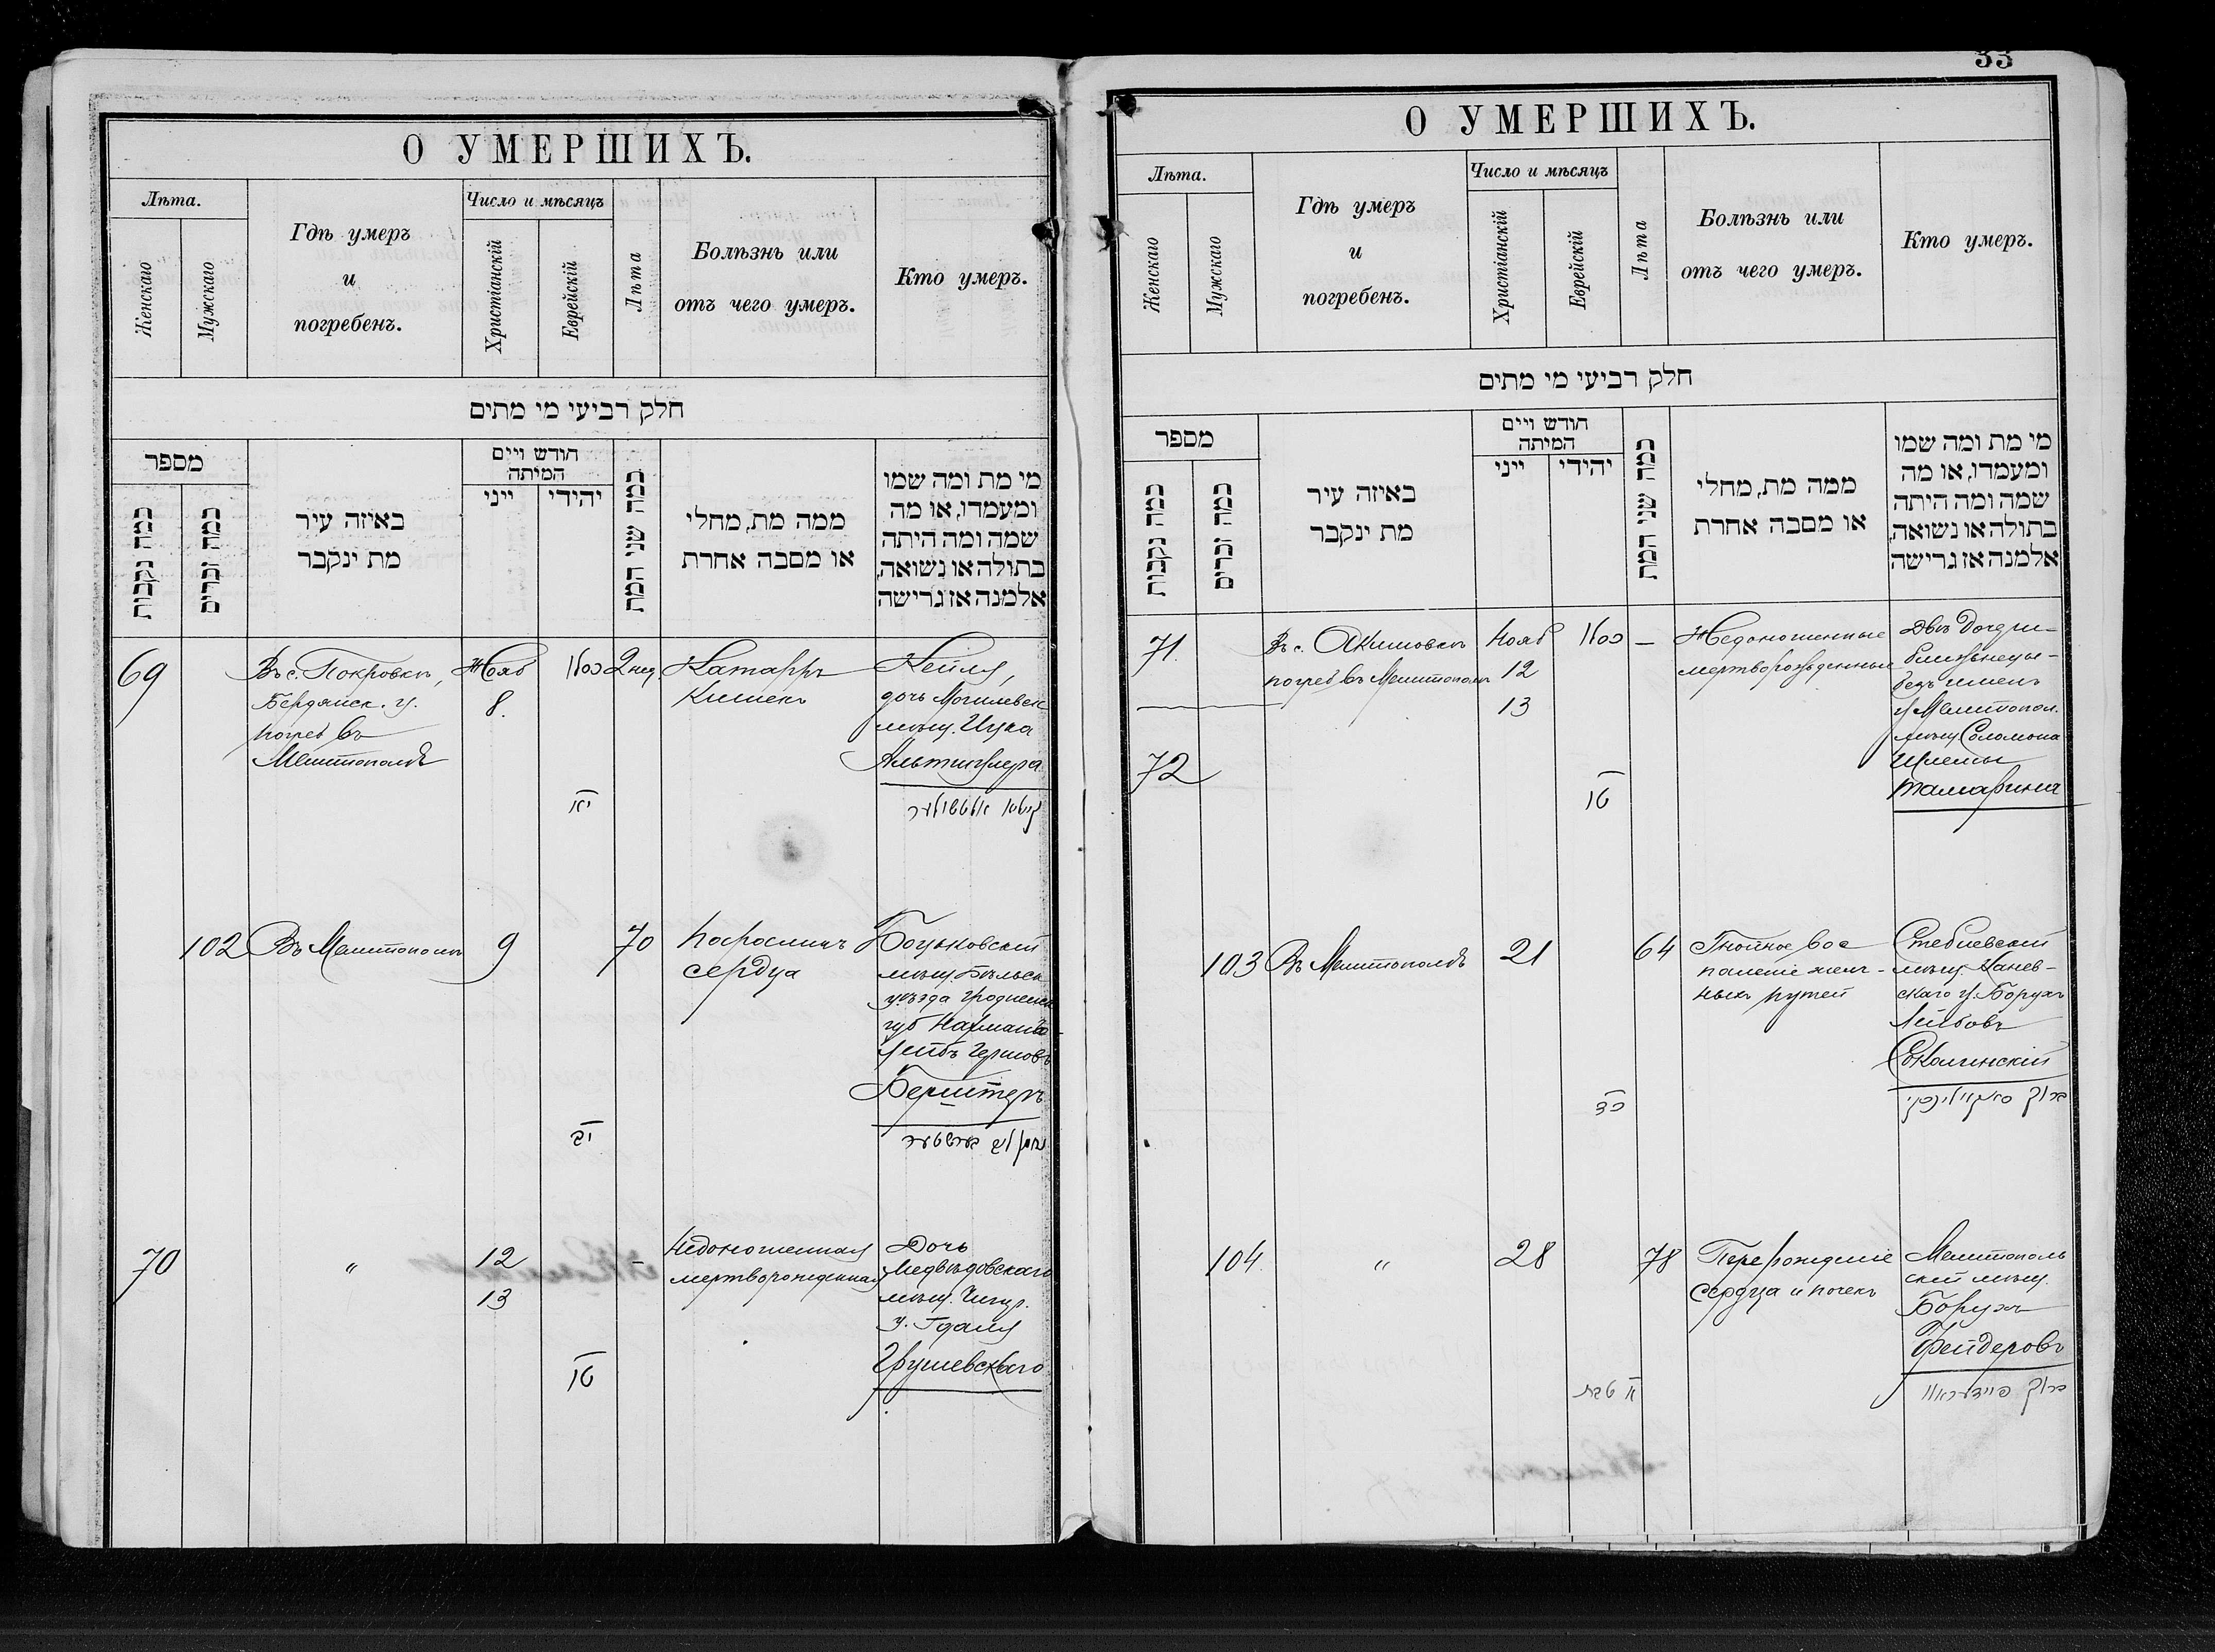 О УМЕРШИХЪ.
Лѣта.
Женскаго
Мужскаго
Гдѣ умеръ
и
погребенъ.
Число и мѣсяцъ
Христіанскій
Еврейскій
Лѣта
Болѣзнь или
отъ чего умеръ.
Кто умеръ.
חלק רביעי מי מתים
מספר
כמה נקבות
כמה זכרים
באיזה עיר
מת ינקבר
חודש ויים
המיתה
ייני
יהידי
כמה שני המת
ממה מת, מחלי
או מסבה אחרת
מי מת ומה שמו
ומעמדו, או מה
שמה ומה היתה
בתולה או נשואה,
אלמנה אז גרישה
69
Въ с. Покровкѣ,
Бердянск. у.
погреб въ
Мелитополѣ
Нояб
8.
כסלו
יא
2 нед
Катарръ
кишекъ
Кейля,
дочь Могилевск
мѣщ. Ицка
Альтшулера
102
Въ Мелитополѣ
9
יב
70
Пораличъ
сердца
Боцьковскій
мѣщ. Бѣльск
уѣзда Гроднен
губ Нахманъ-
Лейбъ Гершовъ
Берштеръ
70
"
12
13
טו
-
Недоношенная
мертворожденная
Дочь
Медвѣдовскаго
мѣщ. Чигир.
у. Гдаля
Грушевскаго
33
О УМЕРШИХЪ.
Лѣта.
Женскаго
Мужскаго
Гдѣ умеръ
и
погребенъ.
Число и мѣсяцъ
Христіанскій
Еврейскій
Лѣта
Болѣзнь или
отъ чего умеръ.
Кто умеръ.
חלק רביעי מי מתים
מספר
כמה נקבות
כמה זכרים
באיזה עיר
מת ינקבר
חודש ויים
המיתה
ייני
יהידי
כמה שני המת
ממה מת, מחלי
או מסבה אחרת
מי מת ומה שמו
ומעמדו, או מה
שמה ומה היתה
בתולה או נשואה,
אלמנה אז גרישה
71.
72
Въ с. Акимовкѣ
погреб въ Мелитополѣ
Нояб
12
13
כסלו
טו
—
Недоношенные
мертворожденные
Двѣ дочери
близнецы -
безъ именъ
Мелитопол.
мѣщ Соломона
Шлемы
Тамаркина
103
Въ Мелитополѣ
21
כד
64
Гнойное вос
паленіе желч-
ныхъ путей
Стеблевскій
мѣщ. Канев-
скаго у. Борухъ
Лейбовъ
Соколинскій
104.
"
28
א טבת
78
Перерожденіе
сердца и почекъ
Мелитополь
скій мѣщ.
Борухъ
Фейдеровъ
ברוך פיידעראוו